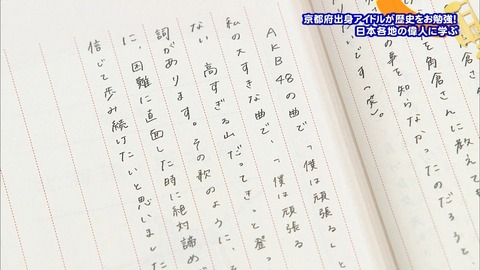 京都府出身アイドルが歴史をお勉強!
日本各地の偉人に学ぶ
倉さんに教えて
の事を知らなかったのだろうと
いです(笑)。
AKB48の曲で、「僕は頑張る」と
私の大すきな曲で、「僕は頑張る
ない 高すぎる山だってきっと登っ
詞があります。その歌のように、
に、困難に直面した時に絶対諦め
信じて歩み続けたいと思いました